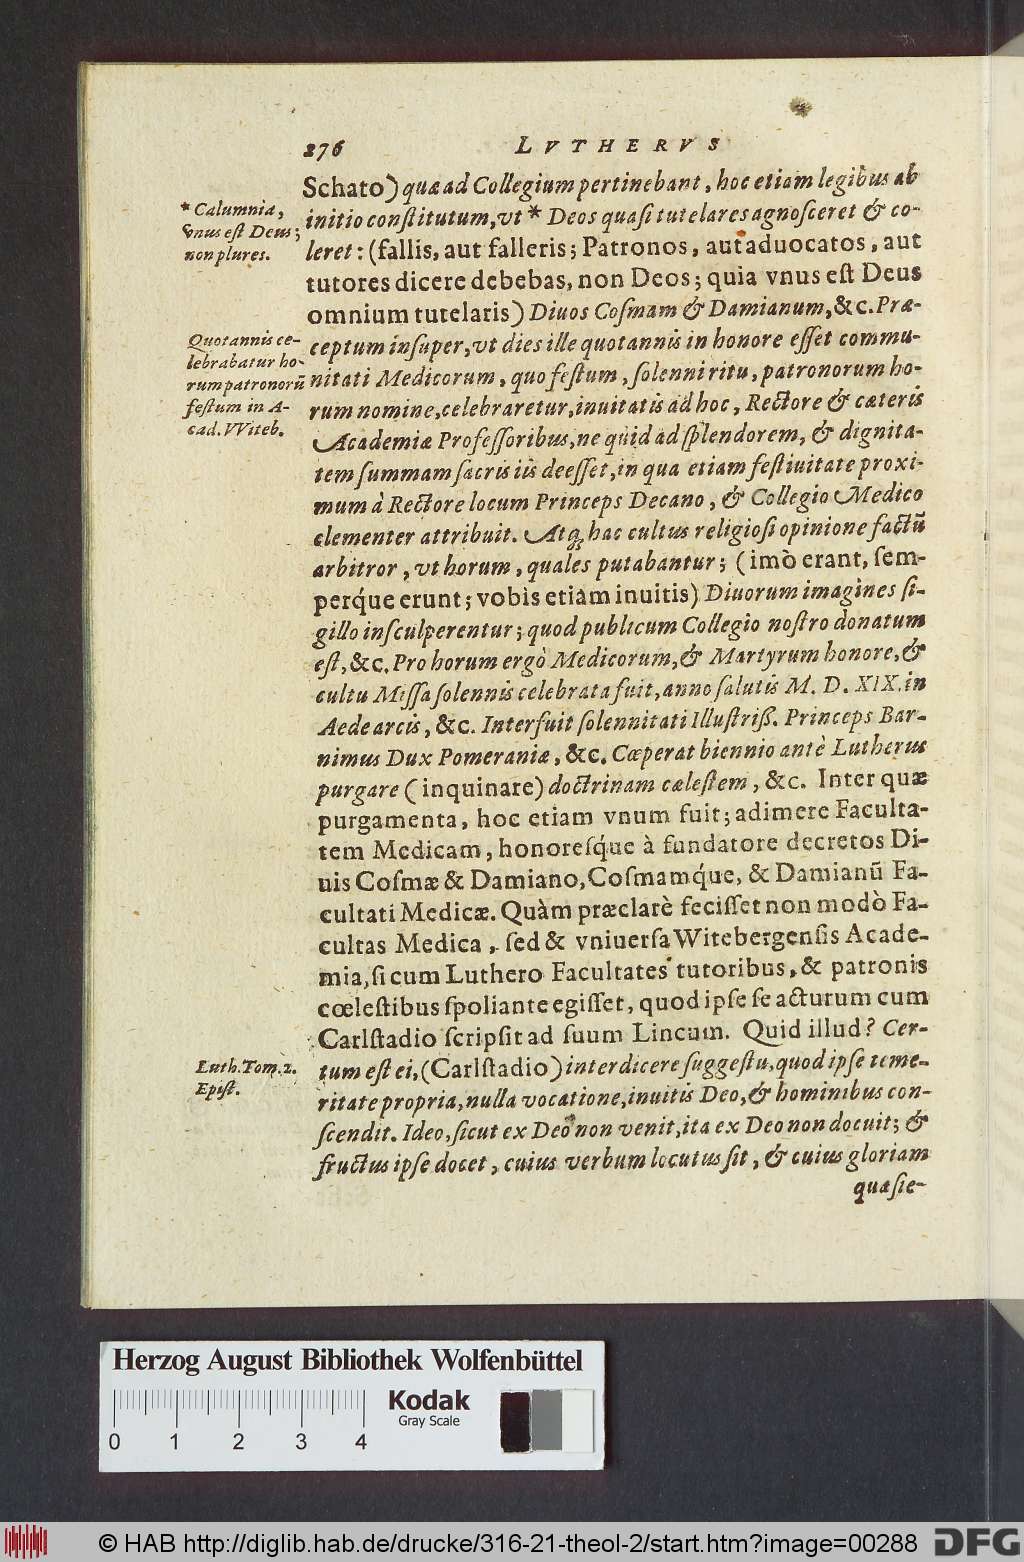 276 LVTHERVS
Schato) quæ ad Collegium pertinebant, hoc etiam legibus ab
initio conſtitutum, vt * Deos quaſi tutelares agnoſceret & co-
leret: (fallis, aut falleris; Patronos, aut aduocatos, aut
tutores dicere debebas, non Deos; quia vnus eſt Deus
omnium tutelaris) Diuos Coſmam & Damianum, &c. Præ-
ceptum inſuper, vt dies ille quotannis in honore eſſet commu-
nitati Medicorum, quo feſtum, ſolenni ritu, patronorum ho-
rum nomine, celebraretur, inuitatis ad hoc, Rectore & cæteris
Academiæ Profeſſoribus, ne quid ad ſplendorem, & dignita-
tem ſummam ſacris iis deeſſet, in qua etiam feſtiuitate proxi-
mum à Rectore locum Princeps Decano, & Collegio Medico
clementer attribuit. Atq; hac cultus religioſi opinione factũ
arbitror, vt horum, quales putabantur; (imò erant, ſem-
perq́ue erunt; vobis etiam inuitis) Diuorum imagines ſi-
gillo inſculperentur; quod publicum Collegio noſtro donatum
eſt, &c. Pro horum ergò Medicorum, & Martyrum honore, &
cultu Miſſa ſolennis celebrata fuit, anno ſalutis M. D. XIX. in
Aede arcis, &c. Interfuit ſolennitati Illuſtriß. Princeps Bar-
nimus Dux Pomeraniæ, &c. Cœperat biennio antè Lutherus
purgare (inquinare) doctrinam cæleſtem, &c. Inter quæ
purgamenta, hoc etiam vnum fuit; adimere Faculta-
tem Medicam, honoreſq́ue à fundatore decretos Di-
uis Coſmæ & Damiano, Coſmamq́ue, & Damianũ Fa-
cultati Medicæ. Quàm præclarè feciſſet non modò Fa-
cultas Medica, ſed & vniuerſa Witebergenſis Acade-
mia, ſi cum Luthero Facultates tutoribus, & patronis
cœleſtibus ſpoliante egiſſet, quod ipſe ſe acturum cum
Carlſtadio ſcripſit ad ſuum Lincum. Quid illud? Cer-
tum eſt ei, (Carlſtadio) interdicere ſuggeſtu, quod ipſe teme-
ritate propria, nulla vocatione, inuitis Deo, & hominibus con-
ſcendit. Ideo, ſicut ex Deo non venit, ita ex Deo non docuit; &
fructus ipſe docet, cuius verbum locutus ſit, & cuius gloriam
quæſie-
* Calumnia,
vnus eſt Deus;
non plures.
Quotannis ce-
lebrabatur ho-
rum patronorũ
feſtum in A-
cad. VViteb.
Luth. Tom. 2.
Epiſt.
Herzog August Bibliothek Wolfenbüttel
Kodak
Gray Scale
0 1 2 3 4
© HAB http://diglib.hab.de/drucke/316-21-theol-2/start.htm?image=00288
DFG